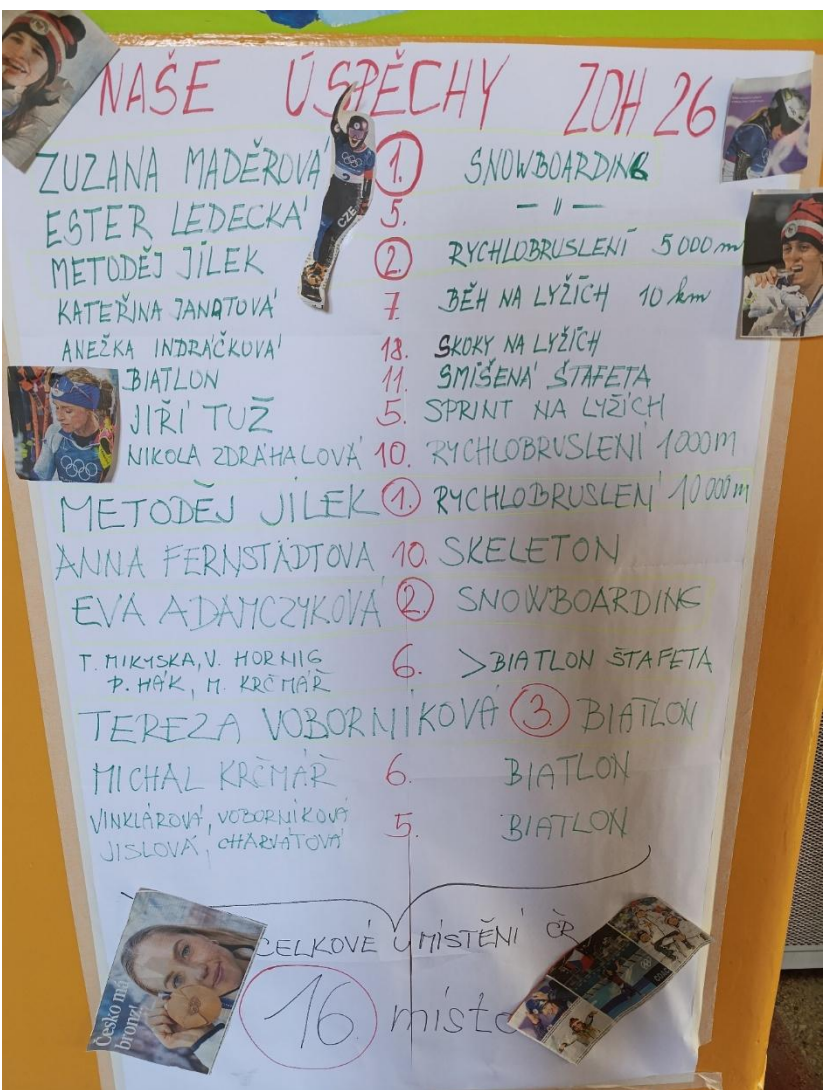 NAŠE ÚSPĚCHY ZOH 26
ZUZANA MADĚROVÁ 1. SNOWBOARDING
ESTER LEDECKÁ 5. — 〃 —
METODĚJ JÍLEK 2. RYCHLOBRUSLENÍ 5000 m
KATEŘINA JANATOVÁ 7. BĚH NA LYŽÍCH 10 km
ANEŽKA INDRÁČKOVÁ 18. SKOKY NA LYŽÍCH
BIATLON 11. SMÍŠENÁ ŠTAFETA
JIŘÍ TUŽ 5. SPRINT NA LYŽÍCH
NIKOLA ZDRÁHALOVÁ 10. RYCHLOBRUSLENÍ 1000 m
METODĚJ JÍLEK 1. RYCHLOBRUSLENÍ 10 000 m
ANNA FERNSTÄDTOVA 10. SKELETON
EVA ADAMCZYKOVÁ 2. SNOWBOARDING
T. MIKYSKA, V. HORNIG 6. >BIATLON ŠTAFETA
P. HÁK, M. KRČMÁŘ
TEREZA VOBORNÍKOVÁ 3. BIATLON
MICHAL KRČMÁŘ 6. BIATLON
VINKLÁROVÁ, VOBORNÍKOVÁ 5. BIATLON
JISLOVÁ, CHARVÁTOVÁ
CELKOVÉ UMÍSTĚNÍ ČR
16 místo
Česko má
bronz!
CZE
2